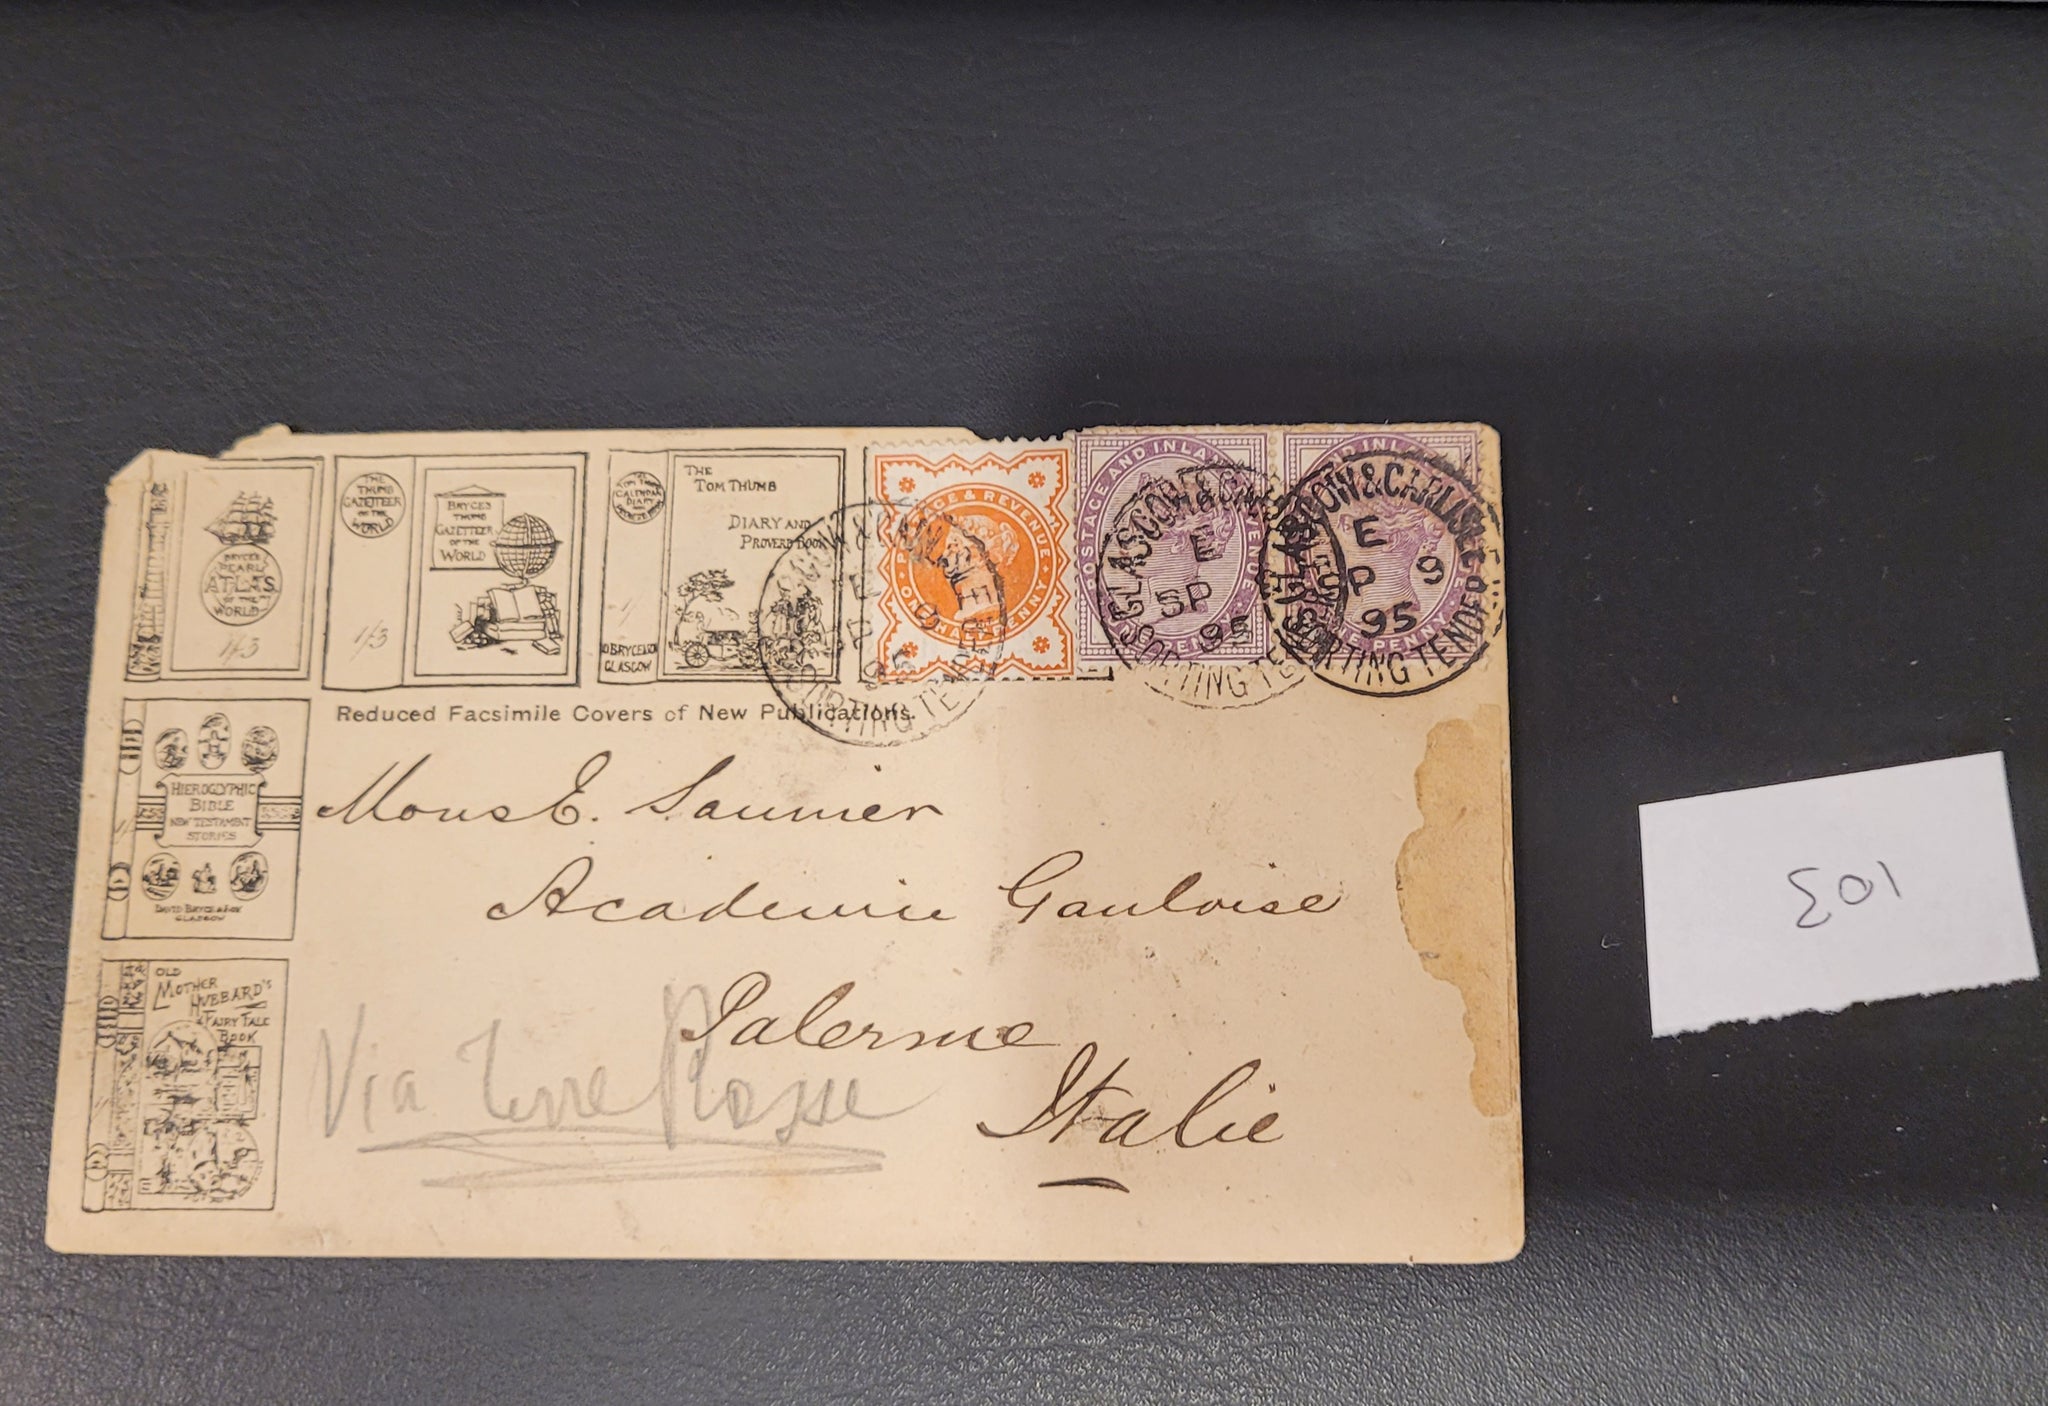 BRYCE'S
PEARL
ATLAS
OF THE
WORLD
1/3
THE
THUMB
GAZETTEER
OF THE
WORLD
1/3
BRYCE'S
THUMB
GAZETTEER
OF THE
WORLD
TOM THUMB
CALENDAR
DIARY
AND
PROVERB BOOK
GLASGOW
THE
TOM THUMB
DIARY AND
PROVERB BOOK
POSTAGE & REVENUE
HALFPENNY
POSTAGE AND INLAND REVENUE
ONE PENNY
GLASGOW & CARLISLE
E
9
SP
95
SORTING TENDER
GLASGOW & CARLISLE
E
SP
95
SORTING TENDER
GLASGOW & CARLISLE
E
SP 9
95
SORTING TENDER
Reduced Facsimile Covers of New Publications.
HIEROGLYPHIC
BIBLE
NEW TESTAMENT
STORIES
DAVID BRYCE & SON
GLASGOW
OLD
MOTHER
HUBBARD'S
FAIRY TALE
BOOK
Mons E. Saunier
Académie Gauloise
Palerme
Italie
Via
103